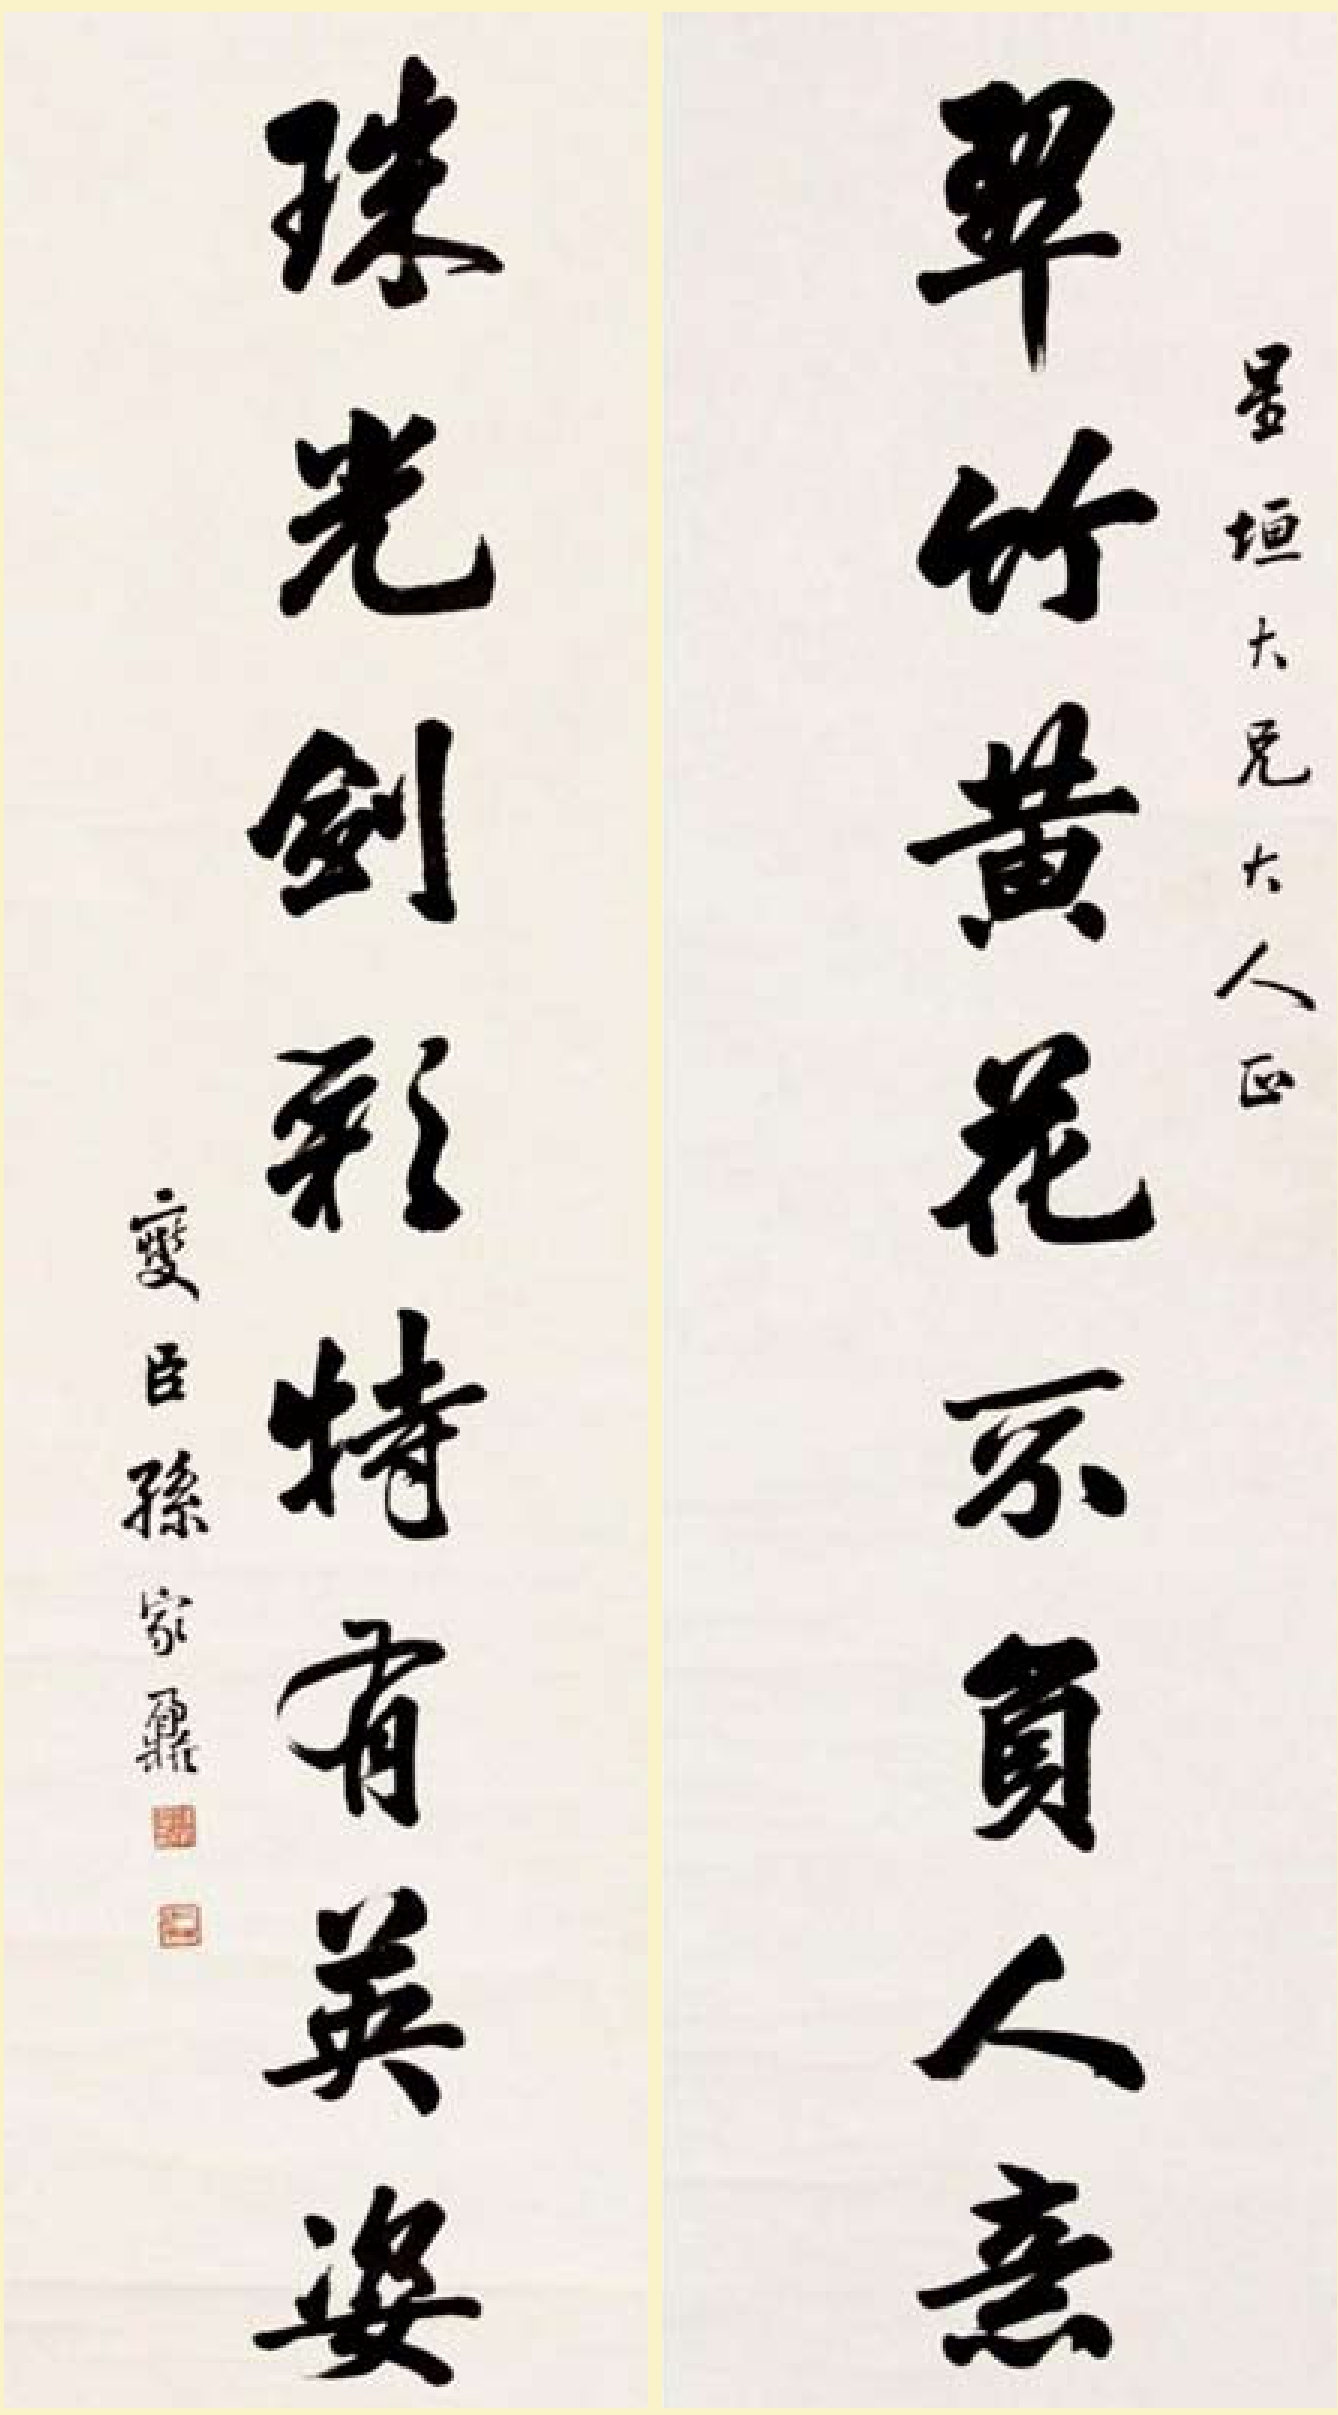 星垣大兄大人正
翠竹黃花不負人意
珠光劍彩特有英姿
燮臣孫家鼐